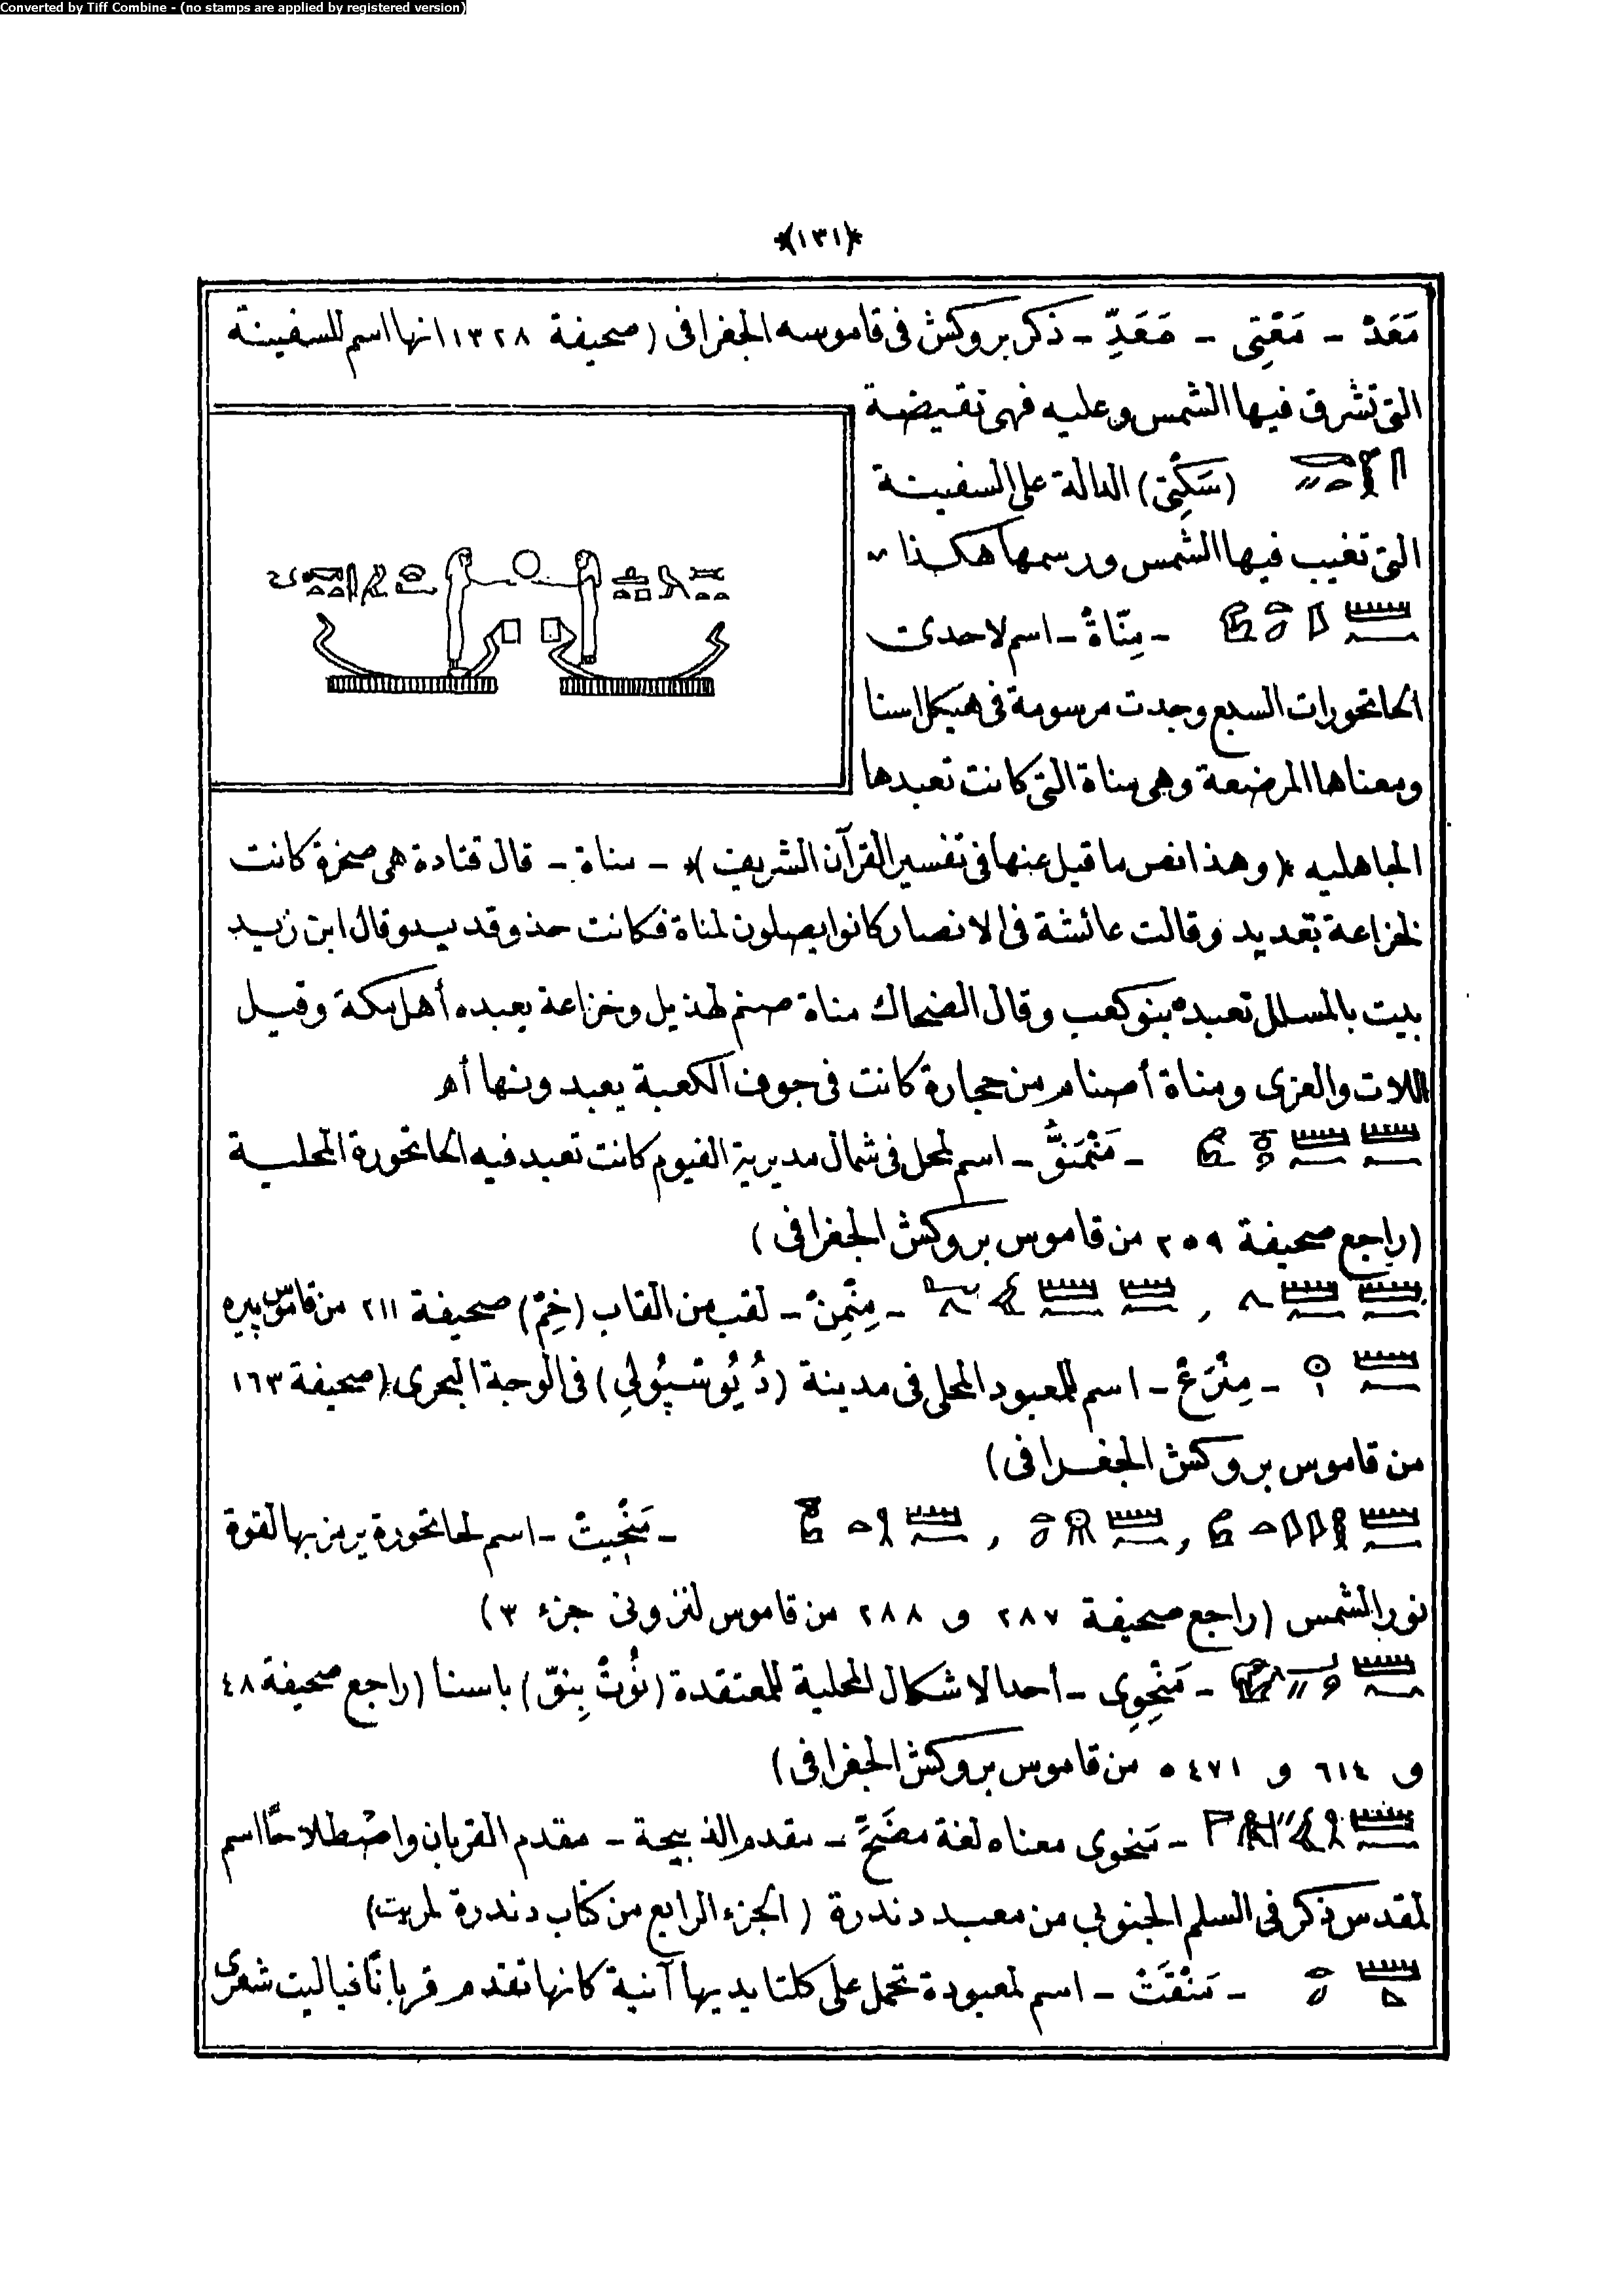 Converted by Tiff Combine - (no stamps are applied by registered version)
*(١٣١)*
مَعَدْ - مَعْتِى - مَعَدِّ - ذكر بروكش فى قاموسه الجغرافى (صحيفة ١٣٢٨ انها اسم للسفينة
التى تشرق فيها الشمس وعليه فهى نقيضة
(سَكِتى) الدالة على السفينة
التى تغيب فيها الشمس ورسمها هكذا ~
- مِنّاةْ - اسم لاحدى
الحاتحورات السبع وجدت مرسومة فى هيكل اسنا
ومعناها المرضعة وهى مناة التى كانت تعبدها
الجاهليه *(وهذا نص ما قيل عنها فى تفسير القرآن الشريف)* - مناة - قال قتادة هى صخرة كانت
لخزاعة بقديد وقالت عائشة فى الانصار كانوا يصلون لمناة فكانت حذو قديد وقال ابن زيد
بيت بالمسلل تعبده بنو كعب وقال الضحاك مناة صنم لهذيل وخزاعة يعبده أهل مكة وقيل
اللات والعزى ومناة أصنام من حجارة كانت فى جوف الكعبة يعبدونها أه
- اسم لمحل فى شمال مديرية الفيوم كانت تعبد فيه الحاتحورة المحلية
(راجع صحيفة ٢٥٩ من قاموس بروكش الجغرافى)
, - مِنْمِنْ - لقب من القاب (خِمْ) صحيفة ٢١١ من قاموس بيره
- مِنْرَعْ - اسم للمعبود المحلى فى مدينة (دُيُوسْپُولِي) فى الوجة البحرى (صحيفة ١٦٣
من قاموس بروكش الجغرافى)
, , - مَنْحِيتْ - اسم لحاتحورة يرمز بها لقوة
نور الشمس (راجع صحيفة ٢٨٧ و ٢٨٨ من قاموس لنزونى جزء ٣)
- مَنْحِوِى - أحد الاشكال المحلية للمعتقدة (نُوتْ) باسنا (راجع صحيفة ٤٨
و ٦١٤ و ٥٤٧١ من قاموس بروكش الجغرافى)
- منحوى معناه لغة مضَحٍّ - مقدم الذبيحة - مقدم القربان واصطلاحاً اسم
لمقدس ذكر فى السلم الجنوبي من معبد دندرة (الجزء الرابع من كتاب دندرة لمريت)
- مَنْقَتْ - اسم لمعبودة تحمل على كلتا يديها آنية كانها تقدم قرباناً فياليت شعرى